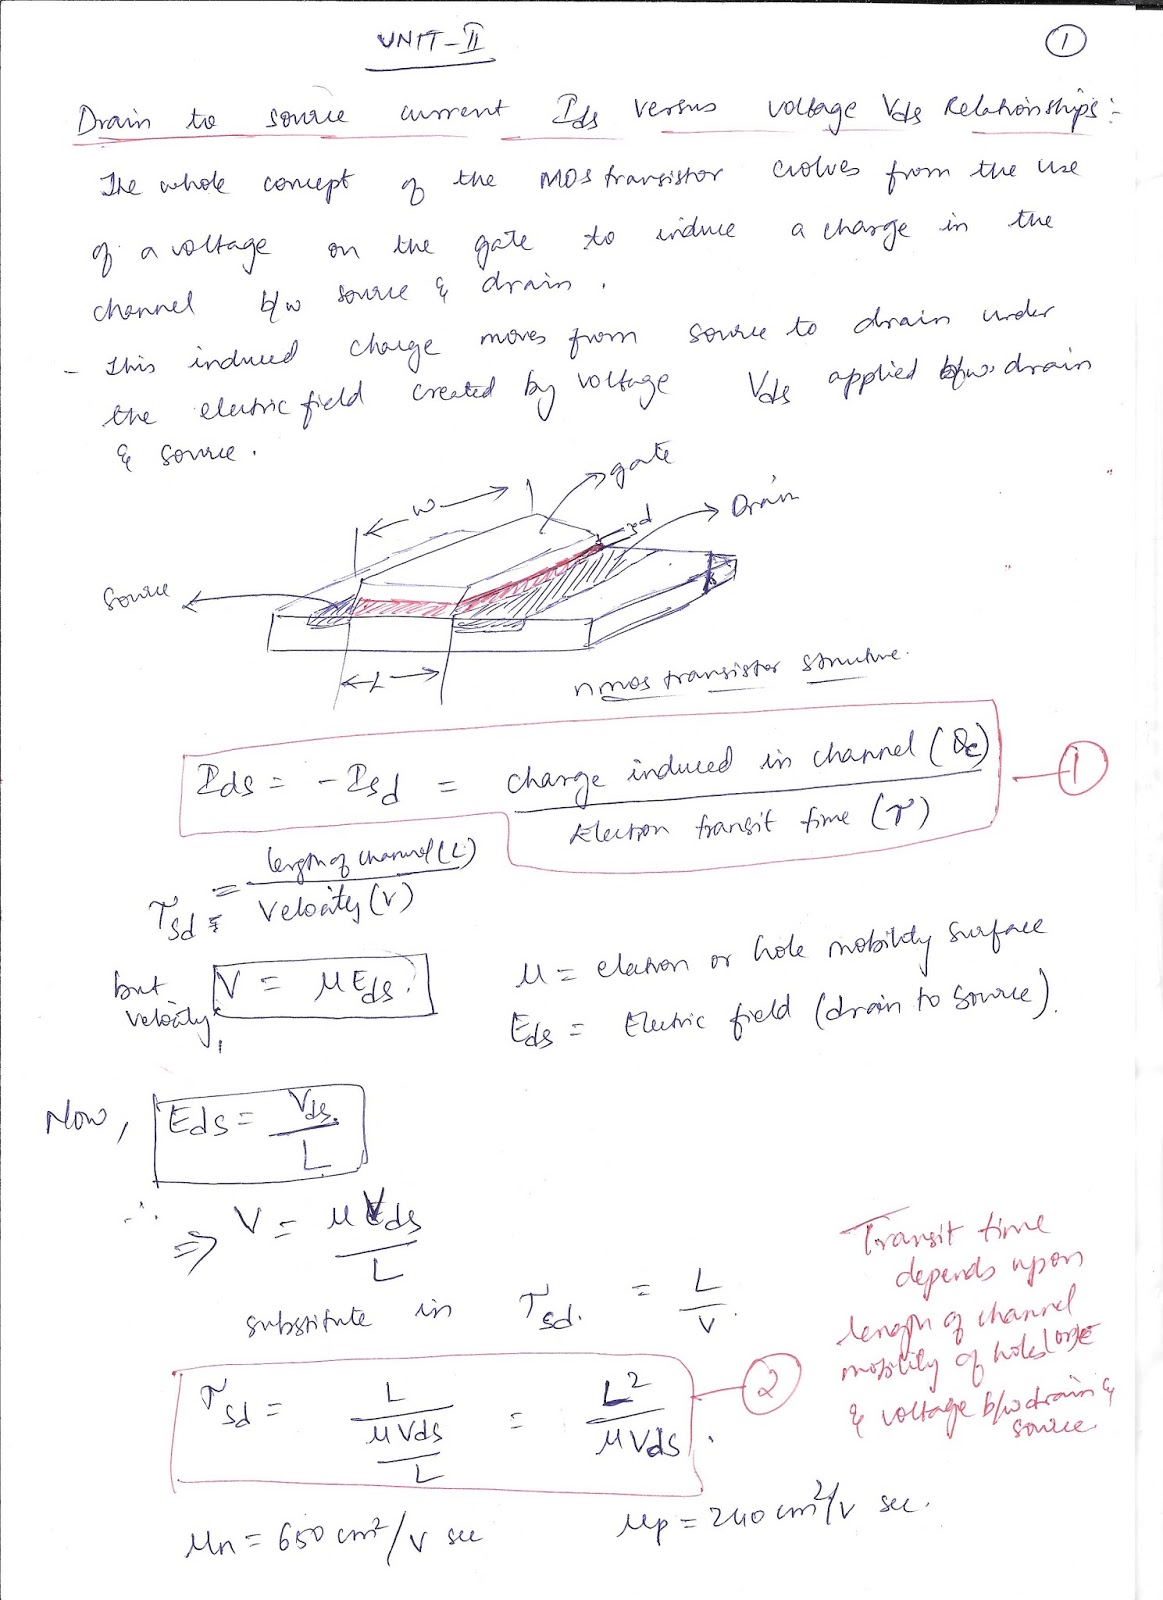 UNIT-II
1
Drain to source current Ids versus voltage Vds Relationships:-
The whole concept of the MOS transistor evolves from the use
of a voltage on the gate to induce a charge in the
channel b/w source & drain.
- This induced charge moves from source to drain under
the electric field created by voltage Vds applied b/w drain
& source.
W
gate
Drain
d
Source
L
nmos transistor structure.
Ids = -Isd = charge induced in channel (Qc)
Electron transit time (τ)
1
τsd = length of channel (L)
Velocity (V)
but velocity, V = μEds.
μ = electron or hole mobility surface
Eds = Electric field (drain to source).
Now, Eds = Vds.
L
∴ ⇒ V = μVds
L
substitute in τsd. = L
V.
τsd = L = L²
μVds μVds.
L
2
Transit time
depends upon
length of channel
mobility of holes
& voltage b/w drain &
source.
μn = 650 cm²/V sec μp = 240 cm²/V sec.